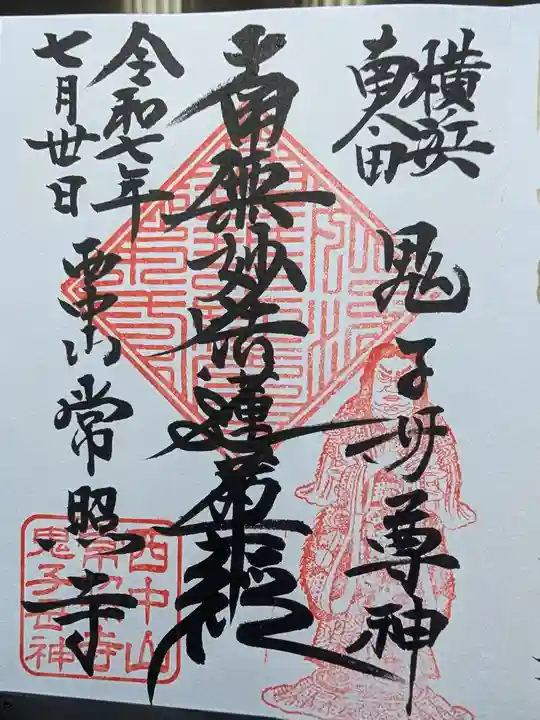 横浜
南太田
鬼子母尊神
南無妙法蓮華経
令和七年
七月丗日
西中山
常照寺
西中山
常照寺
鬼子母神